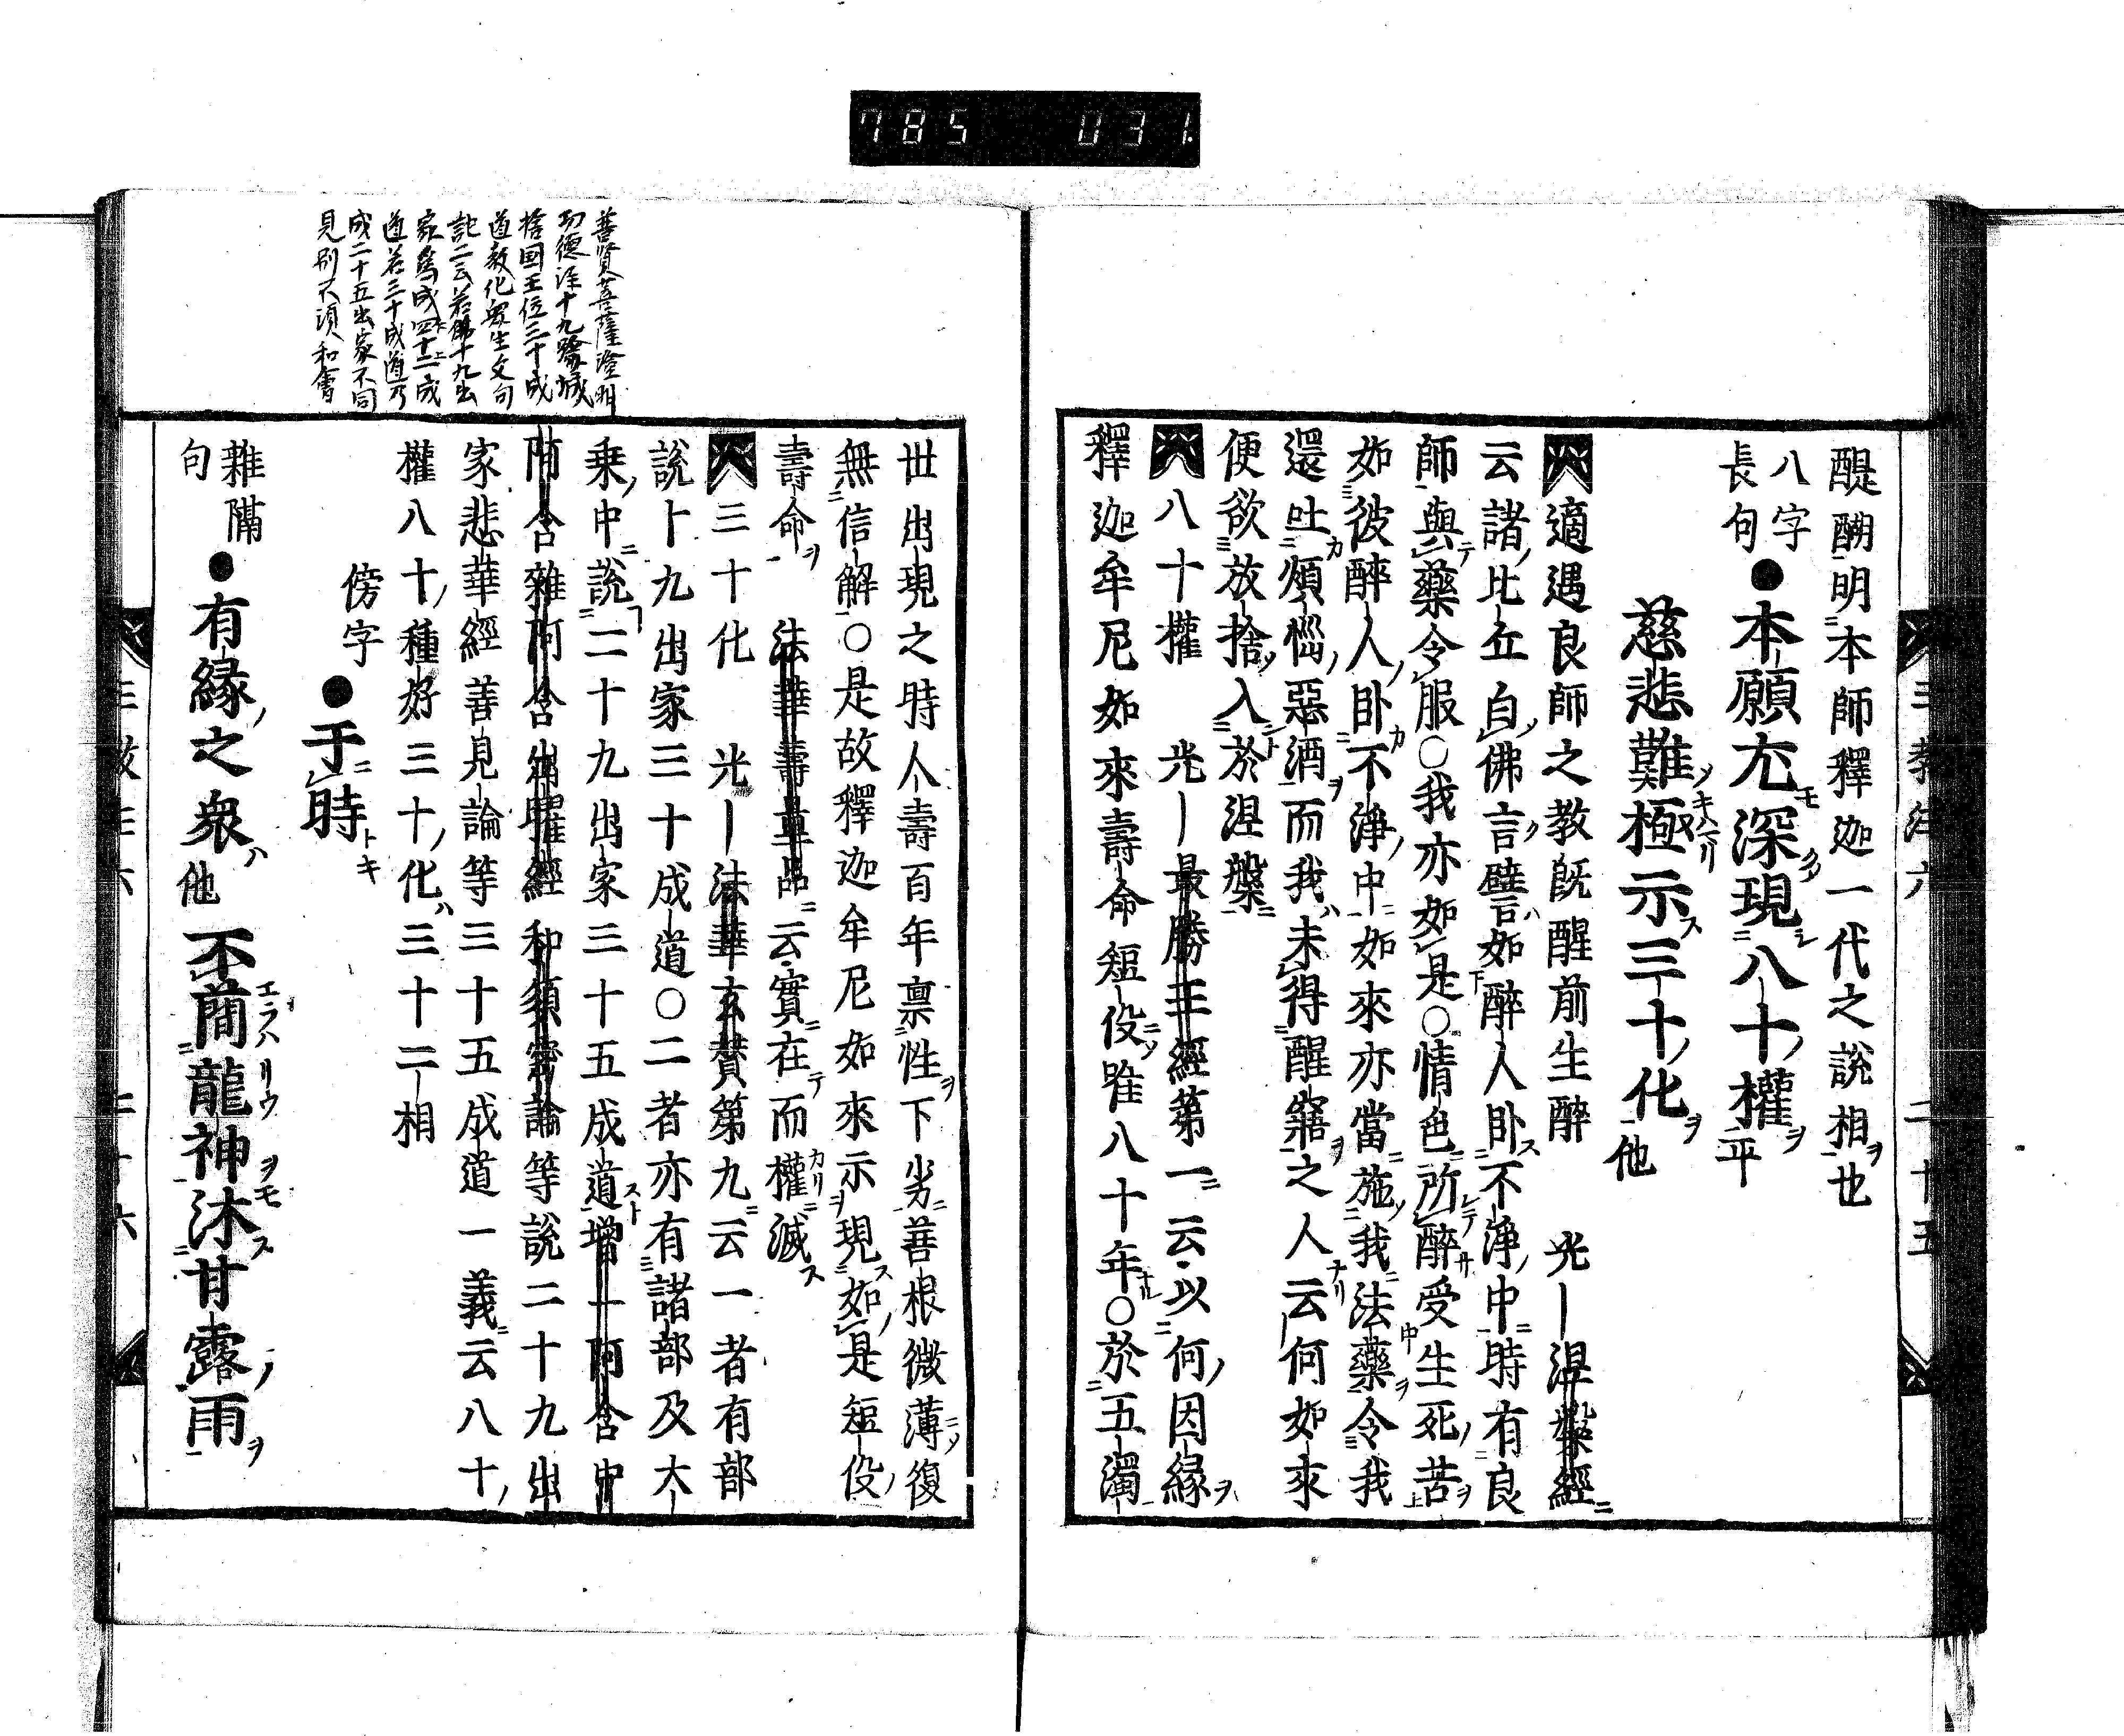 785 031.
醍醐明本師釋迦一代之說相也
八字
長句
●本願尤深現八十權平
慈悲難極示三十化他
適遇良師之教既醒前生醉 光丨涅槃經
云諸比丘白佛言譬如醉人卧不淨中時有良
師與藥令服○我亦如是○情色所醉受生死苦
如彼醉人卧不淨中如來亦當施我法藥令我
還吐煩惱惡酒而我未得醒寤之人云何如來
便欲放捨入於涅槃
八十權 光丨最勝王經第一云以何因緣
釋迦牟尼如來壽命短促唯八十年○於五濁
世出現之時人壽百年稟性下劣善根微薄復
無信解○是故釋迦牟尼如來示現如是短促
壽命 法華壽量品云實在而權滅
三十化 光丨法華玄贊第九云一者有部
說十九出家三十成道○二者亦有諸部及大
乘中說二十九出家三十五成道增一阿含中
阿含雜阿含出曜經和須蜜論等說二十九出
家悲華經善見論等三十五成道一義云八十
權八十種好三十化三十二相
傍字
●于時
雜隔
句
●有緣之衆他 不簡龍神沐甘露雨
善賢菩薩澄明
功德經十九踰城
捨国王位三十成
道教化衆生文句
記二云若佛十九出
家爲成四十二成
道若三十成道乃
成二十五出家不同
見別不須和會
三教 六 二十五